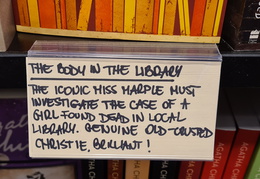 THE BODY IN THE LIBRARY
THE ICONIC MISS MARPLE MUST
INVESTIGATE THE CASE OF A
GIRL FOUND DEAD IN LOCAL
LIBRARY. GENUINE OLD-CRUSTED
CHRISTIE, BRILLIANT!
AGATHA CHRISTIE
AGATHA CHRIST
AGATHA